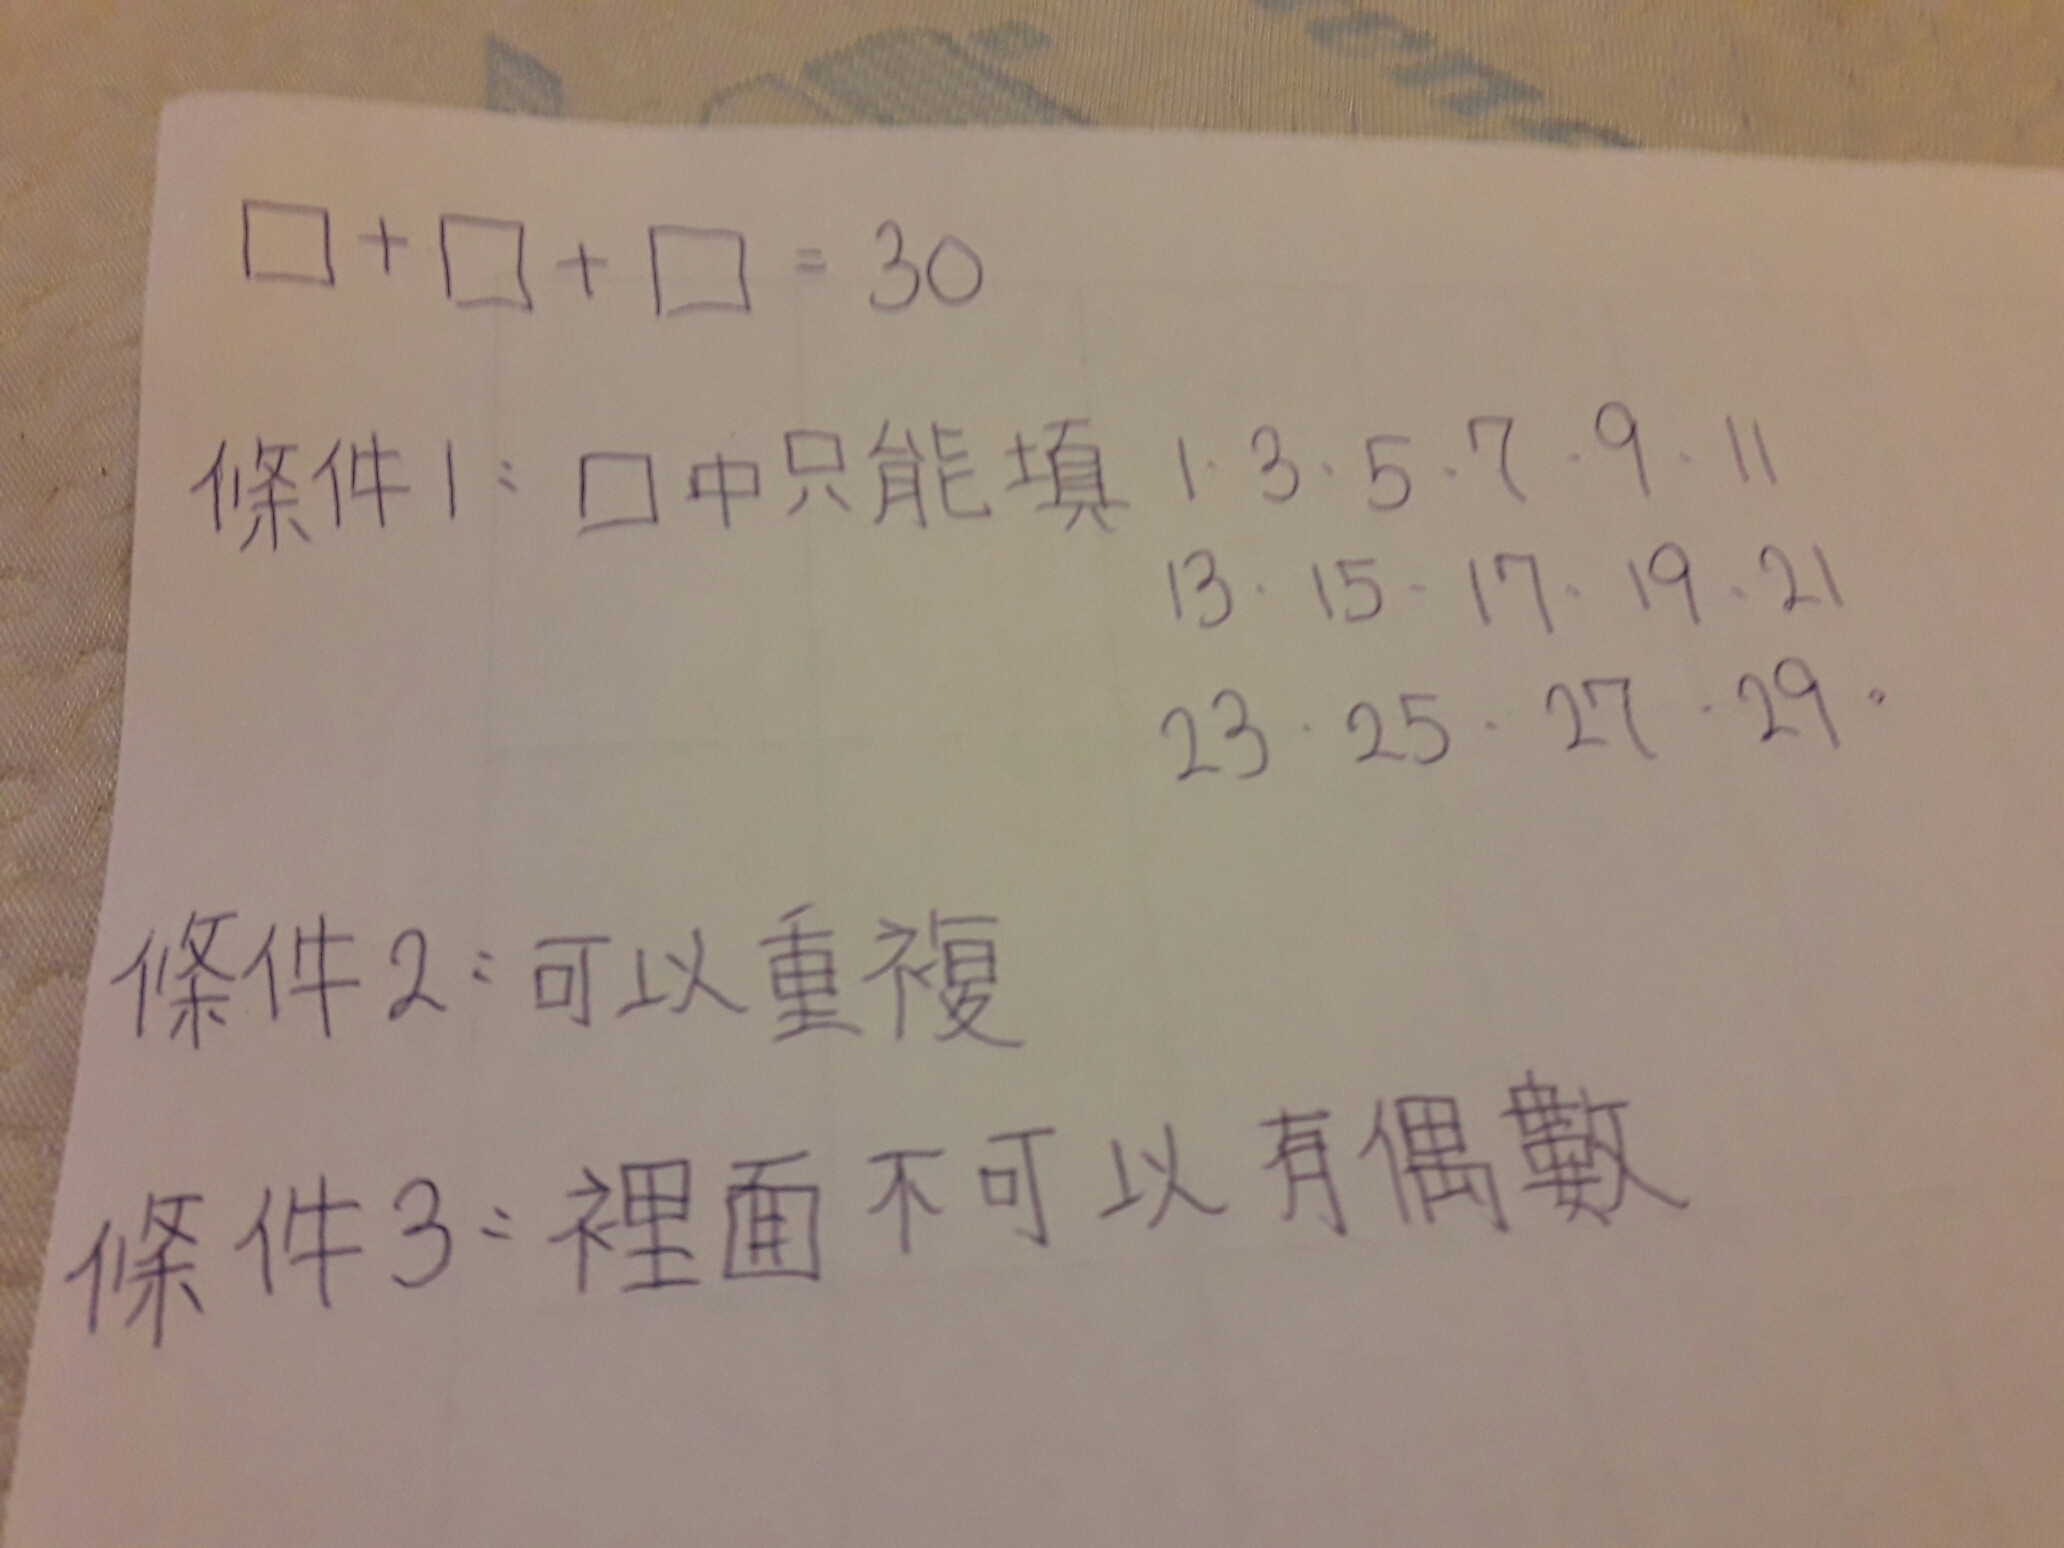 □+□+□=30
條件1:□中只能填 1.3.5.7.9.11
13.15.17.19.21
23.25.27.29.
條件2:可以重複
條件3:裡面不可以有偶數